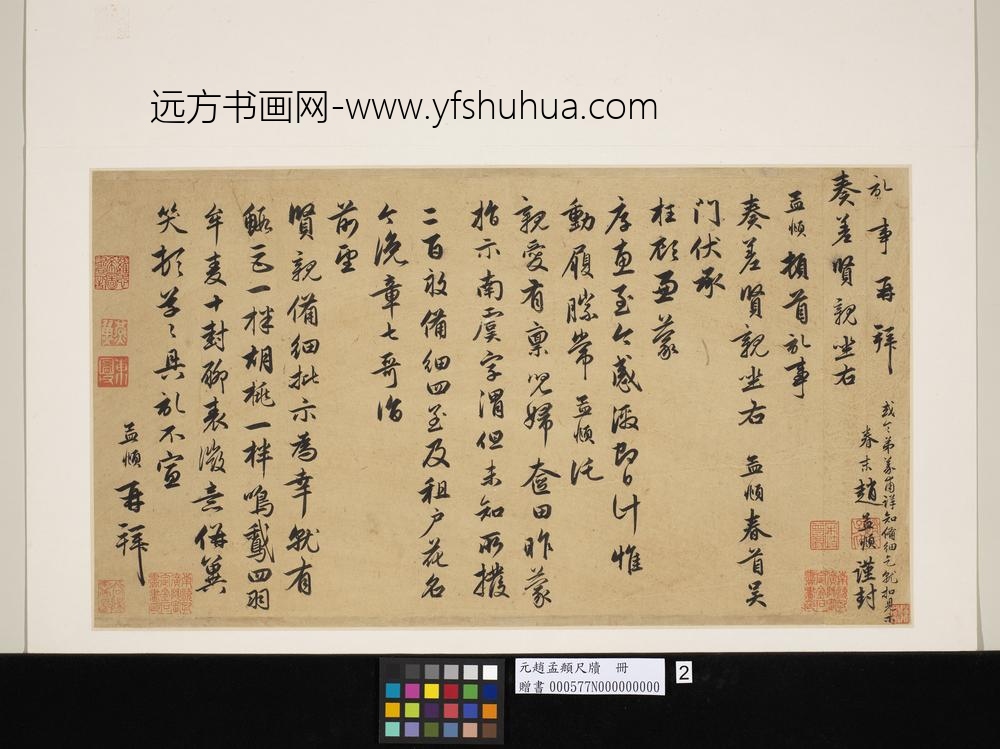 远方书画网-www.yfshuhua.com
記事再拜
奏差賢親坐右
或令弟義甫詳知備細 乞就扣見示
春末趙孟頫謹封
孟頫頓首記事
奏差賢親坐右 孟頫春首吴
門伏承
枉顧兼蒙
序惠至今感激即日計惟
動履勝常孟頫託
親愛有禀兒婦奩田昨蒙
指示南虞字渭但未知所撥
二百畝備細四至及租户花名
今浼章七哥詣
前望
賢親備細批示為幸就有
鰕乞一柈胡桃一柈鳴鵝四羽
牟麦十封聊表微意併冀
笑頓草草具記不宣
孟頫再拜
元趙孟頫尺牘 冊
贈書 000577N000000000
2